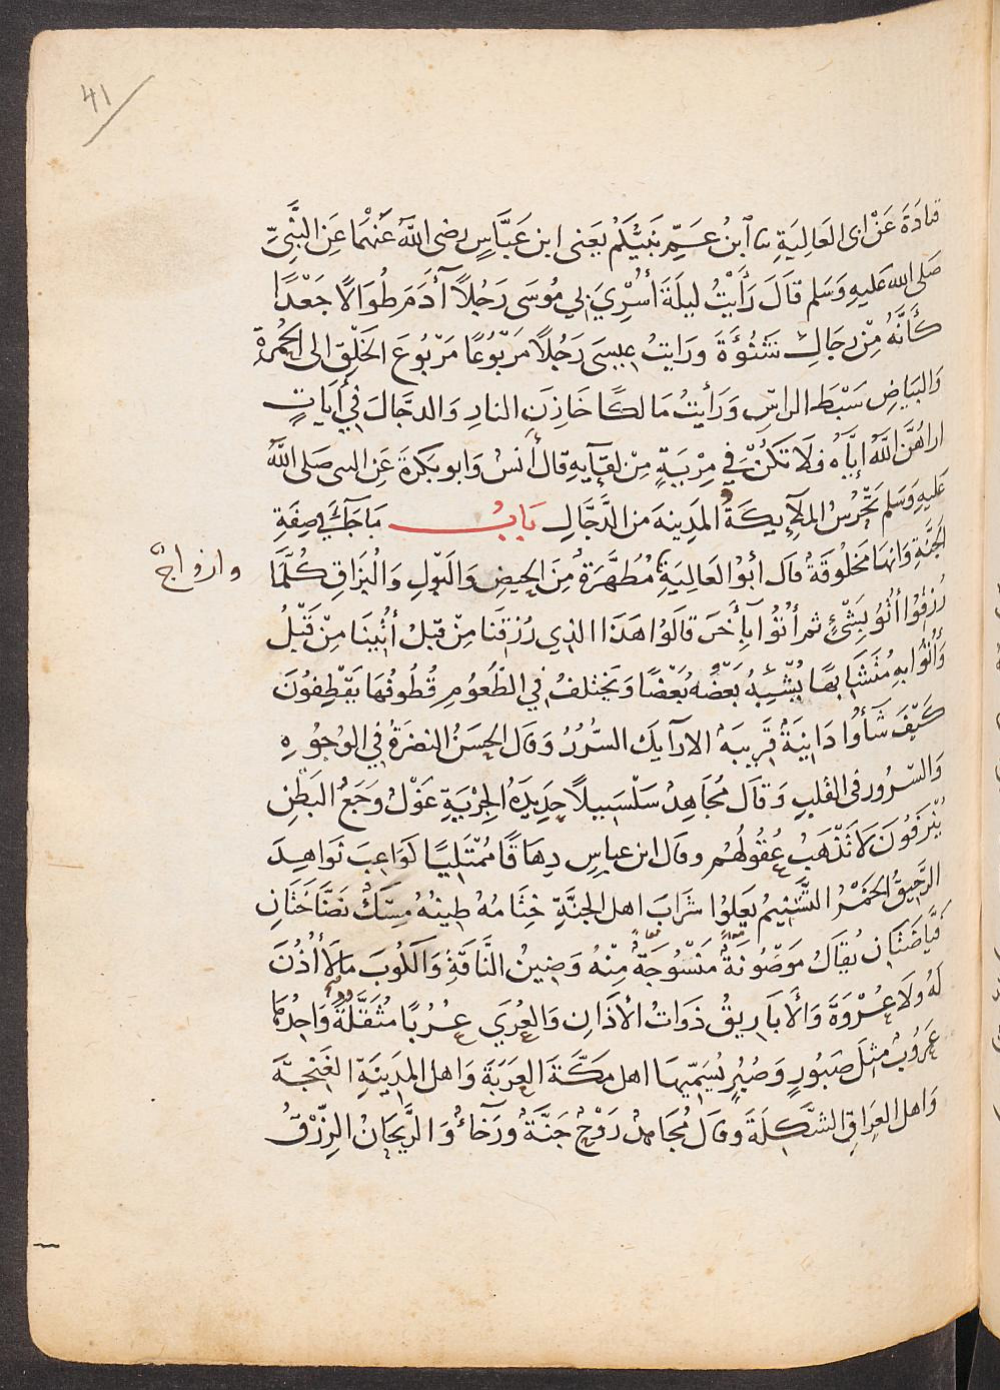 41
قتادة عَنْ ابى العَالِيَةِ نا ابنُ عَمِّ نَبِيِّكُم يَعنى ابن عَبَّاسٍ رضى اللَّهُ عَنْهُمَا عَنِ النَّبِىِّ
صَلى الله عَليهِ وَسَلم قَالَ رَأَيْتُ ليلَةَ أُسْرِيَ بي مُوسَى رَجُلاً آدَمَ طُوَالاً جَعْدًا
كَأَنَّهُ مِنْ رجَالِ شَنُؤَةَ ورَايتُ عِيسَى رَجُلاً مَرْبُوعًا مَرْبُوعَ الخَلْقِ الى الحُمرَة
وَالبَيَاضِ سَبْطَ الراسِ وَرَأَيتُ مَالكًا خَازِنَ النارِ وَالدجَّالَ فِي أَيَاتٍ
اراهُنَّ اللَّهُ إيَّاه فلَا تَكُنْ فِي مِرْيَةٍ مِنْ لقَآيِهِ قال أنَس وَابو بَكرَةَ عَنِ النبى صَلى اللَّه
عَليهِ وَسَلم تَحْرُسُ المَلآيِكَةُ المَدِينَةَ مِنَ الدَّجَّالِ بَابُ مَا جَآءَ فِي صِفَةِ
الجَنَّةِ وَانهَا مَخلُوقَةٌ قال أبُو العَالِيَةِ مُطَهَّرَةٌ مِنَ الحَيضِ وَالبَولِ وَالْبُزَاقِ كُلَّمَا
وازواجٌ
رُزِقُوا أُتُوُ بِشَيْءٍ ثم أُتُوُا بِآخَرَ قَالَوُا هَذَا الذِي رُزِقنَا مِنْ قبلُ أُتِينَا مِنْ قَبْلُ
وَأُتُوُا بِهِ مُتَشَابِهًا يُشْبِهُ بَعْضُه بَعْضًا وَيَختلفُ فِي الطُعُومِ قُطُوفُهَا يَقْطِفُونَ
كَيْفَ شَآءُوا دَانِيَةٌ قَرِيبَةٌ الارَآيِكَ السُرُرُ وَقال الحَسَنُ النضرَةُ فِي الوُجُوهِ
وَالسُرُورُ فى القَلبِ وَقالَ مُجَاهِدٌ سَلْسَبِيلاً حَدِيدَةُ الجِرْيَةِ غَوْلٌ وَجَعُ البَطْنِ
يُنْزَفُونَ لَا تَذْهَبُ عُقُولُهُم وقال ابن عباسٍ دِهَاقًا مُمْتَلِيًا كَوَاعِبَ نَوَاهِدَ
الرَحِيقُ الخَمْرُ التَسْنِيمُ يَعلوا شَرَابَ اهل الجنَّةِ خِتَامُهُ طِينُهُ مِسْكٌ نَضَّاخَتَانِ
فَيَّاضَتَانِ يُقالُ مَوْضُونَةٌ مَنْسُوجَةٌ مِنْهُ وَضِينُ النَّاقَةِ وَالكُوبَ مالَا أُذُنَ
لَهُ ولَا عُرْوَةَ وَالأَبَارِيقُ ذَوَاتُ الأذَانِ وَالعُرَي عُرُبًا مُثَقَّلَةٌ وَاحِدُهَا
عَرُوبٌ مثلَ صَبُورٍ وَصُبُرٍ يُسَمِّيهَا اهل مَكَّةَ العَرِبَةَ وَاهل المَدِينَةِ الغَنِجَةَ
وَاهل العِرَاقِ الشَكِلَةَ وقال مُجَاهدٌ رَوْحٌ جَنَّةٌ ورَخَآءٌ وَالرَّيحَانُ الرِزْقُ